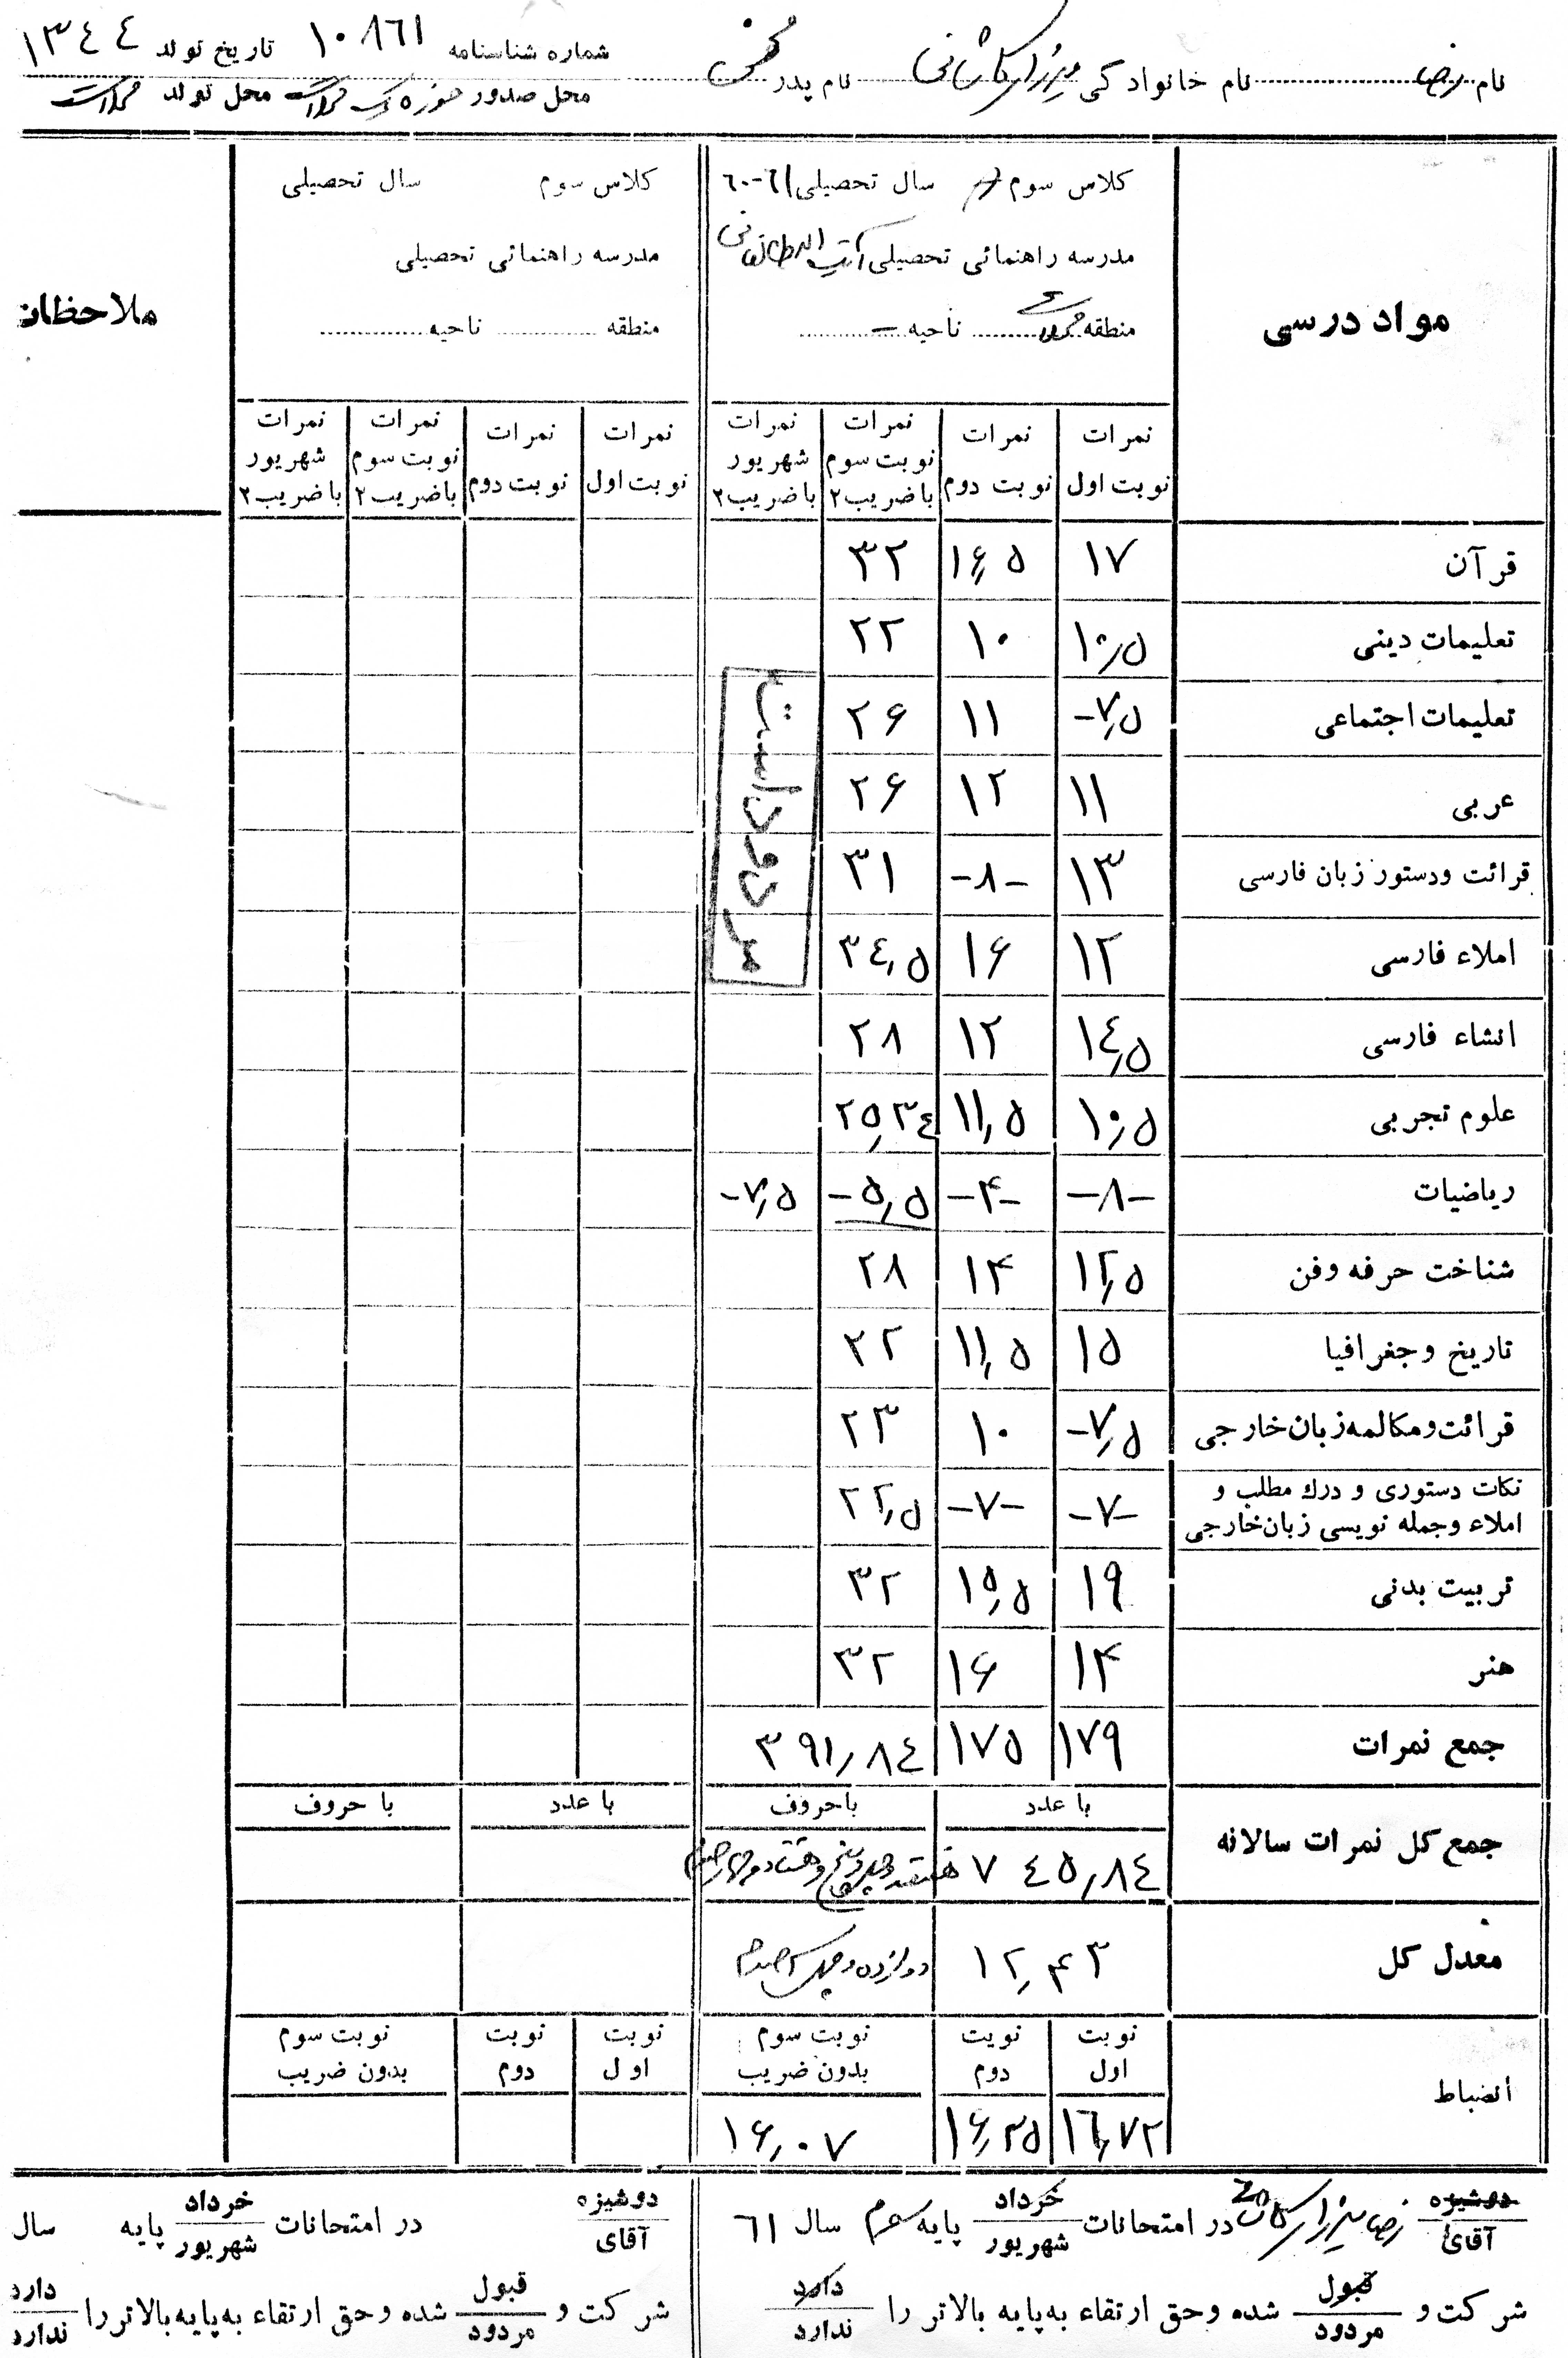 نام رضا نام خانوادگی میرزائی کاشانی نام پدر محسن شماره شناسنامه ۱۰۸٦۱ تاریخ تولد ۱۳٤٤
محل صدور حوزه محل تولد
مواد درسی
کلاس سوم سال تحصیلی ٦۱-٦۰
مدرسه راهنمائی تحصیلی آیت الله طالقانی
منطقه ناحیه —
کلاس سوم سال تحصیلی
مدرسه راهنمائی تحصیلی
منطقه ناحیه
ملاحظات
نمرات نوبت اول نمرات نوبت دوم نمرات نوبت سوم با ضریب ۲ نمرات شهریور با ضریب ۲ نمرات نوبت اول نمرات نوبت دوم نمرات نوبت سوم با ضریب ۲ نمرات شهریور با ضریب ۲
قرآن ۱۷ ۱۶٫۵ ۳۲
تعلیمات دینی ۱۰٫۵ ۱۰ ۲۲
تعلیمات اجتماعی ۷٫۵- ۱۱ ۲۶
عربی ۱۱ ۱۲ ۲۶
قرائت ودستور زبان فارسی ۱۳ -۸- ۳۱
املاء فارسی ۱۲ ۱۶ ۳٤٫۵
انشاء فارسی ۱٤٫۵ ۱۲ ۲۸
علوم تجربی ۱۰٫۵ ۱۱٫۵ ۲۵٫۳٤
ریاضیات -۸- -۴- ۵٫۵- ۷٫۵-
شناخت حرفه وفن ۱۲٫۵ ۱۴ ۲۸
تاریخ وجغرافیا ۱۵ ۱۱٫۵ ۲۲
قرائت ومکالمه زبان خارجی ۷٫۵- ۱۰ ۲۳
نکات دستوری و درك مطلب و
املاء وجمله نویسی زبان خارجی -۷- -۷- ۲۲٫۵
تربیت بدنی ۱۹ ۱۵٫۵ ۳۲
هنر ۱۴ ۱۶ ۳۲
مردود است
جمع نمرات ۱۷۹ ۱۷۵ ۳۹۱٫۸٤
با عدد باحروف با عدد با حروف
جمع کل نمرات سالانه ۷٤۵٫۸٤ هفتصد و چهل و پنج و هشتاد و چهار صدم
معدل کل ۱۲٫۴۳ دوازده و چهل صدم
نوبت اول نوبت دوم نوبت سوم بدون ضریب نوبت اول نوبت دوم نوبت سوم بدون ضریب
انضباط ۱٦٫۷۲ ۱۶٫۲۵ ۱۶٫۰۷
دوشیزه آقای رضا میرزائی کاشانی در امتحانات خرداد شهریور پایه سوم سال ٦۱
شرکت و قبول مردود شده وحق ارتقاء به پایه بالاتر را دارد ندارد
دوشیزه آقای در امتحانات خرداد شهریور پایه سال
شرکت و قبول مردود شده وحق ارتقاء به پایه بالاتر را دارد ندارد